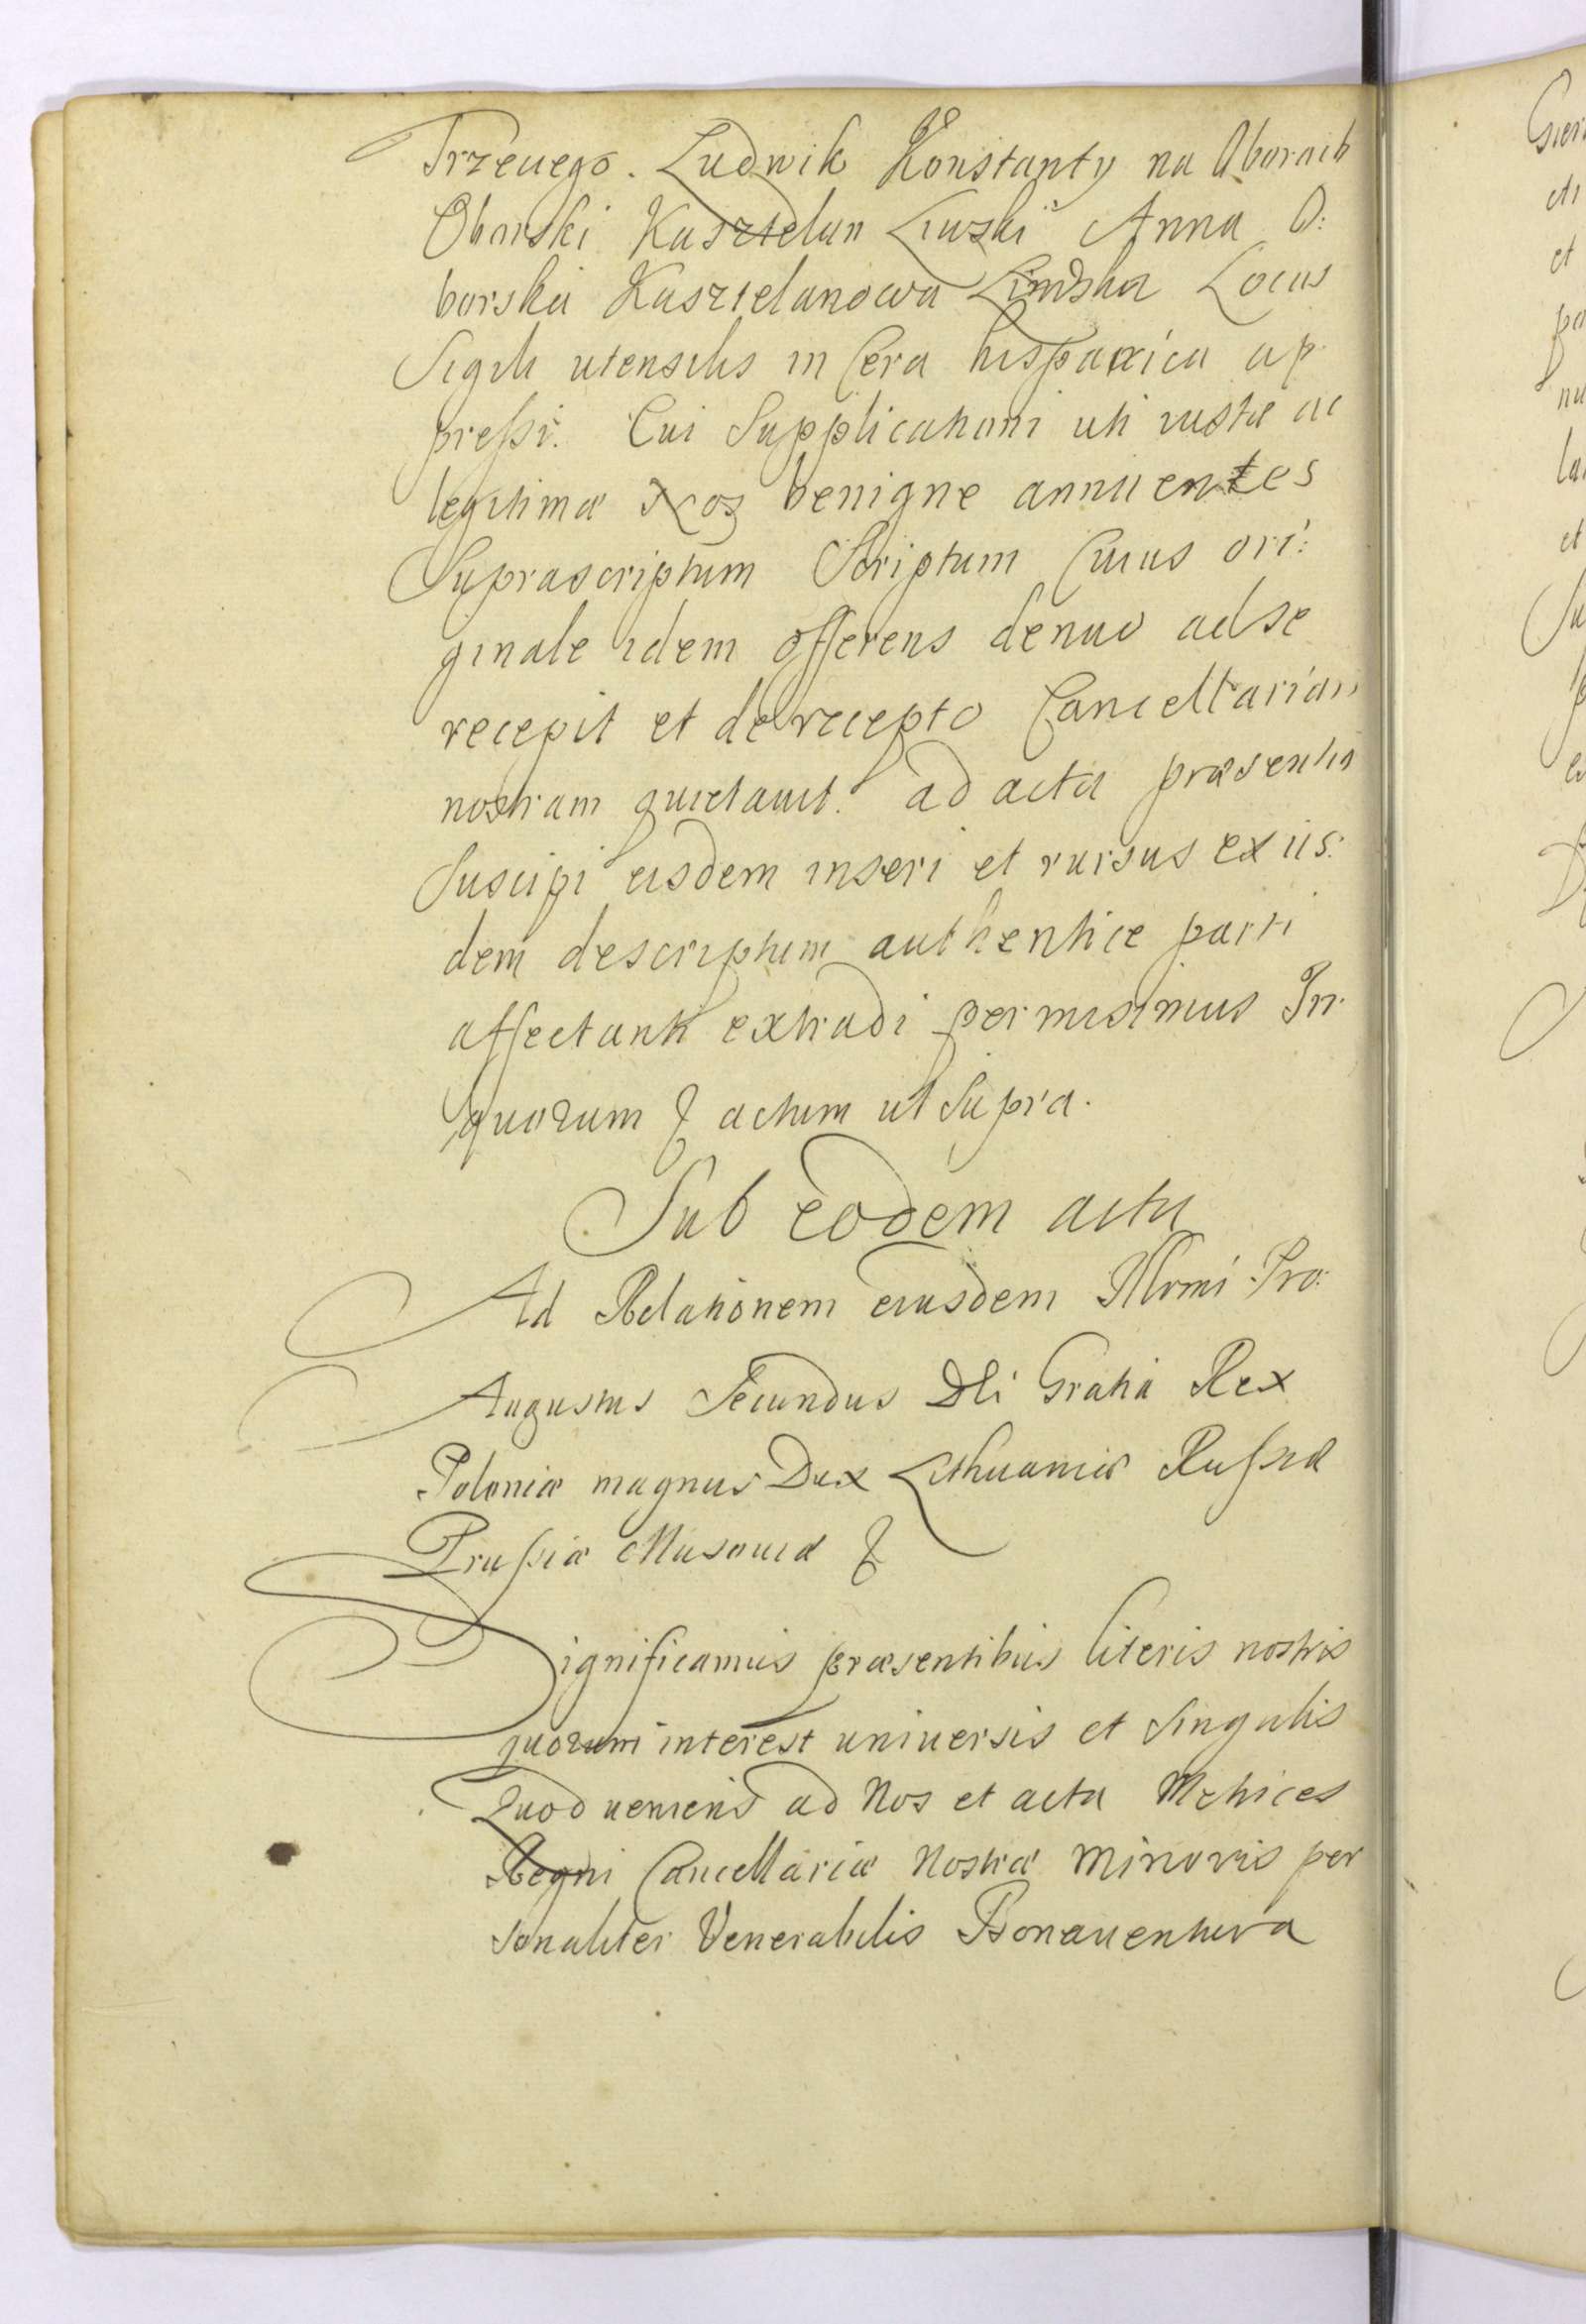 Trzeciego. Ludwik Konstanty na Oborach
Oborski Kasztelan Liwski Anna O:
borska Kasztelanowa Liwska Locus
Sigili utensilis in Cera hispanica ap
preſsi. Cui Supplicationi uti iustæ ac
legitimæ Nos benigne annuentes
Suprascriptum Scriptum Cuius ori:
ginale idem offerens denuo ad se
recepit et de recepto Cancellariam
nostram quietauit. ad acta præsentia
Suscipi eisdem inseri et rursus ex iis:
dem descriptum authentice parti
affectanti extradi permisimus In
quorum & actum ut Supra.
Sub eodem actu
Ad Relationem eiusdem Illrmi Pro:
Augustus Secundus Dei Gratia Rex
Poloniæ magnus Dux Lithuaniæ Ruſsiæ
Pruſsiæ Masouiæ &
Significamus præsentibus literis nostris
quorum interest uniuersis et Singulis
Quod ueniens ad Nos et acta Metrices
Regni Cancellariæ Nostræ Minoris per
sonaliter Venerabilis Bonauentura